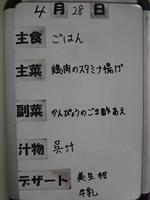 4月28日
主食 ごはん
主菜 鶏肉のスタミナ揚げ
副菜 かんぴょうのごま酢あえ
汁物 呉汁
デザート 美生柑
牛乳